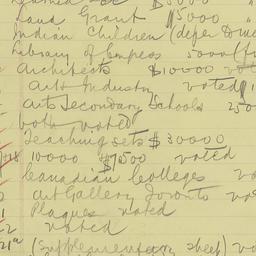 Land Grant $5000
Indian Children (defer
Library of Congress 5000
Architects $10000 voted
Art Industry voted
Arts Secondary Schools 250
both voted
Teaching sets $30000
10000 $7500 voted
Canadian Colleges vo
Art Gallery Toronto vo
Plaques voted
voted
21a (Supplementary sheet) vo